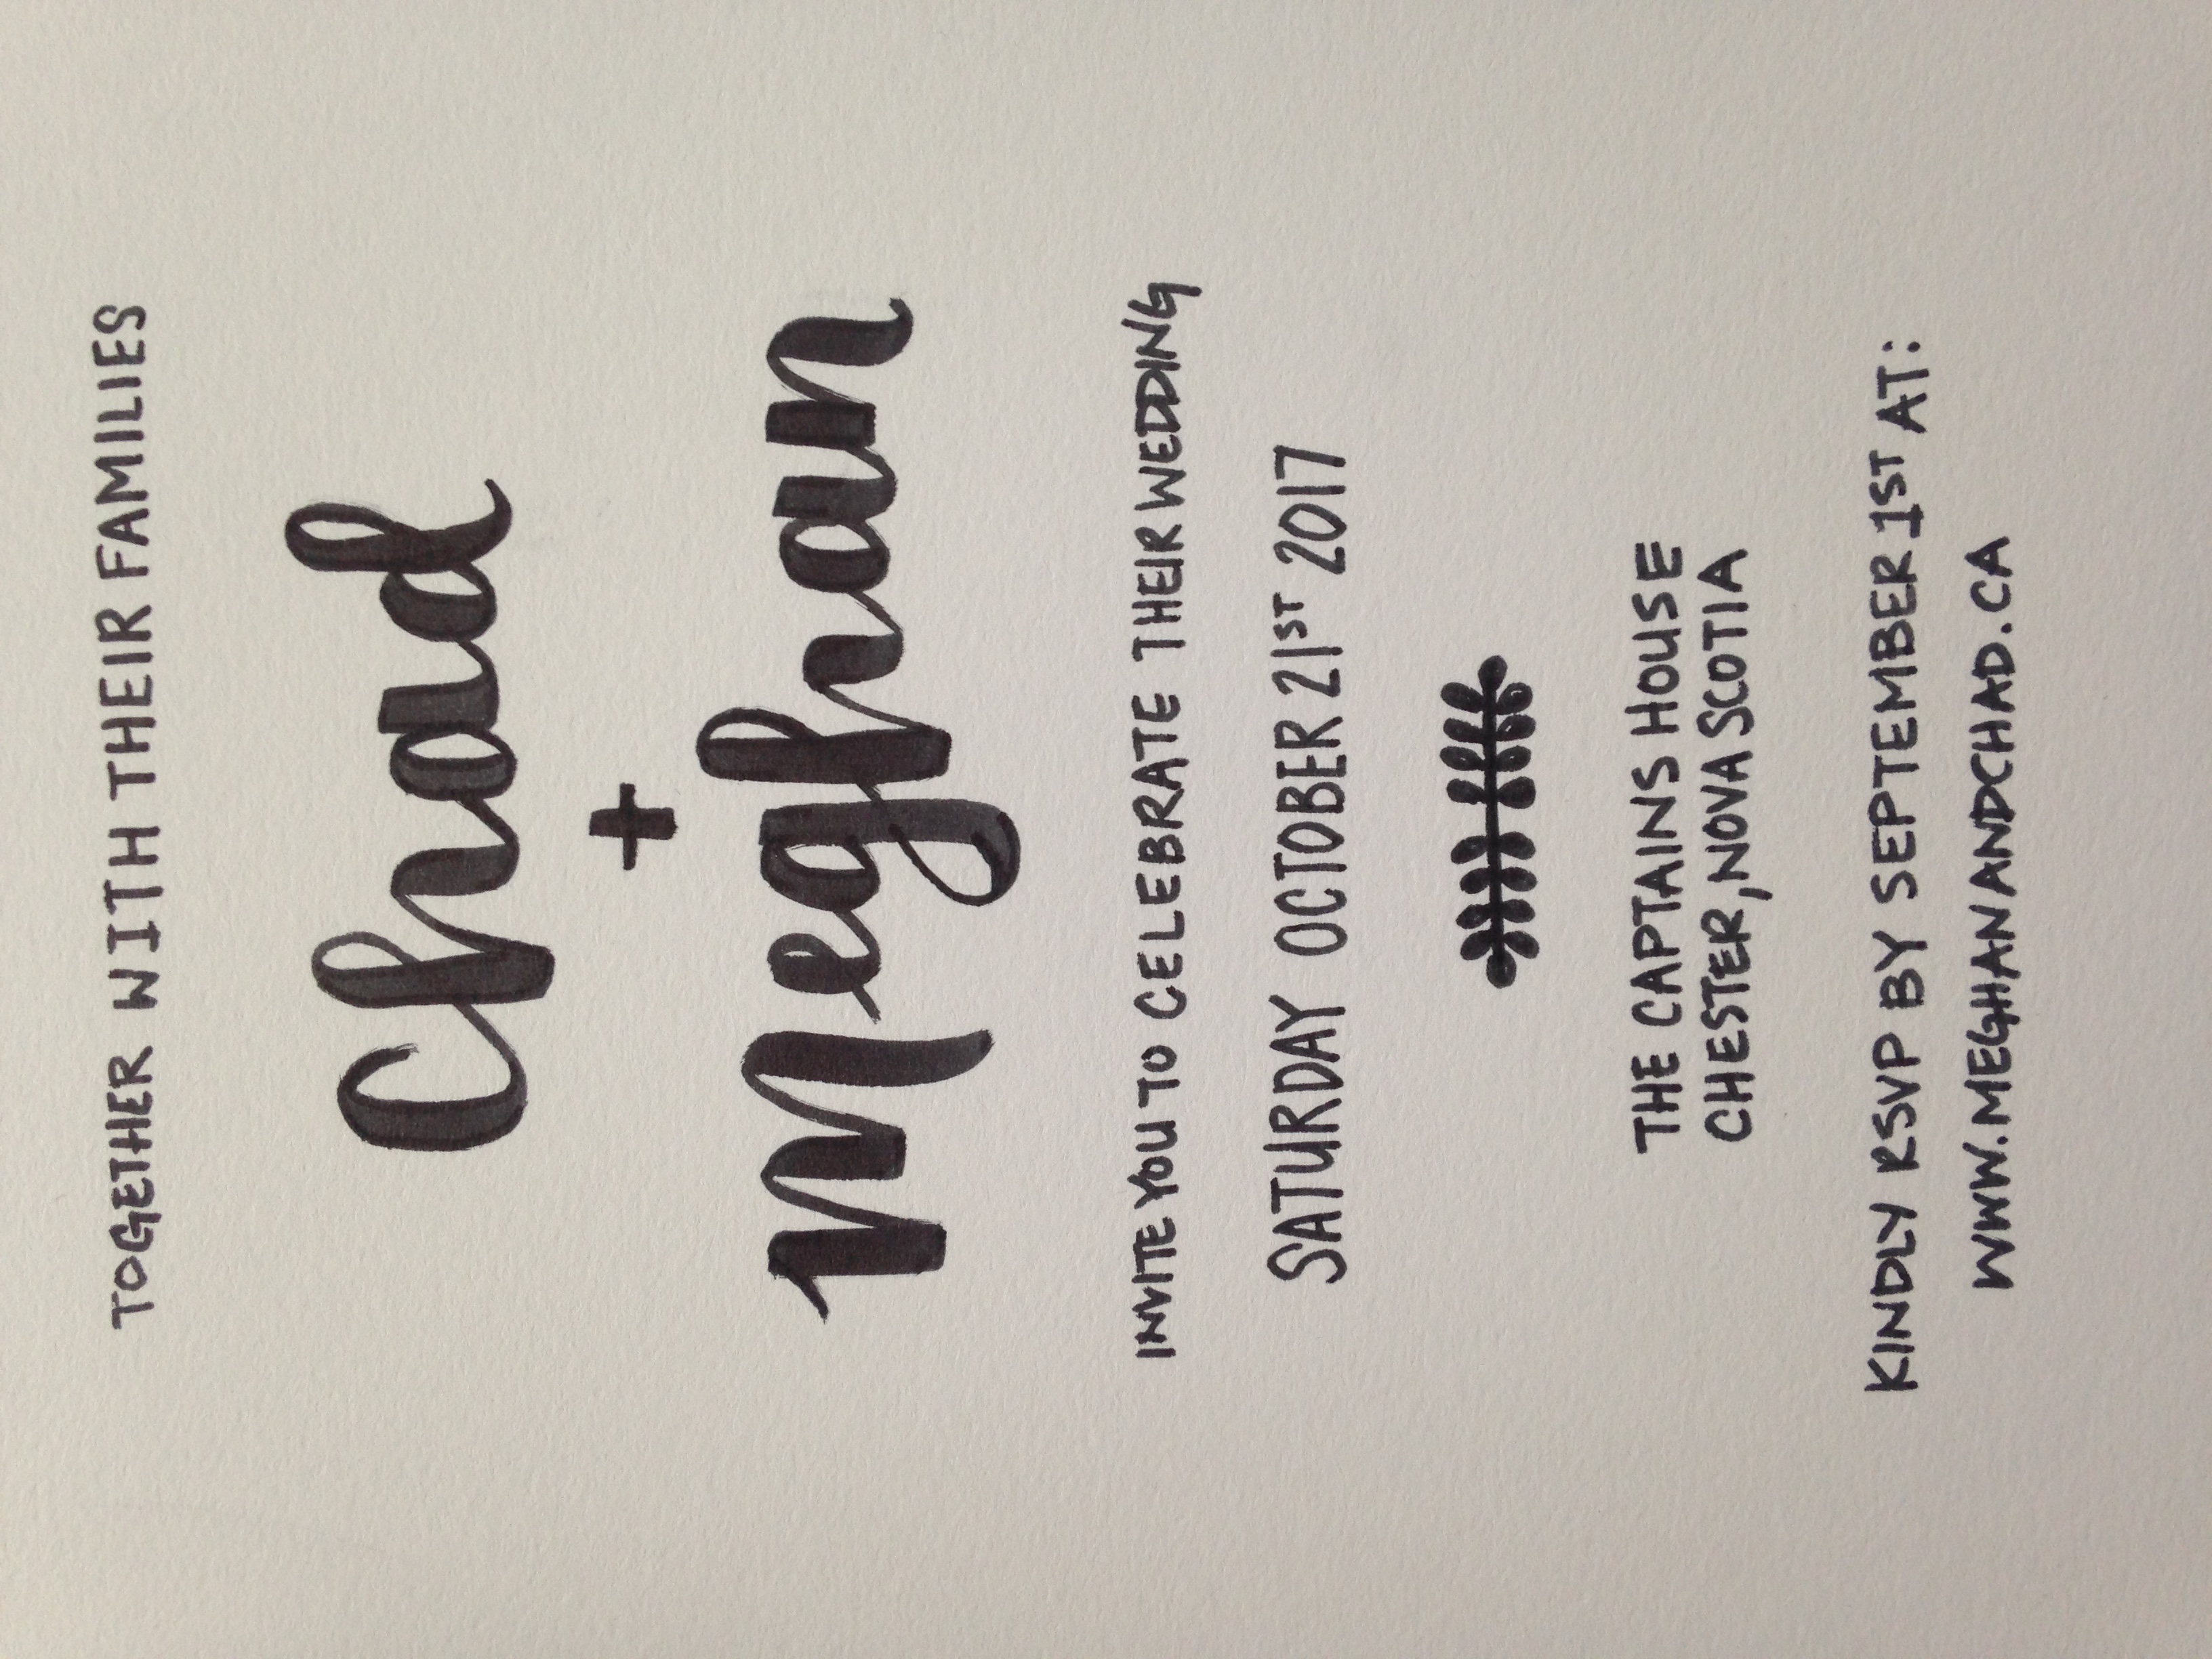 TOGETHER WITH THEIR FAMILIES
Chad
+
Meghan
INVITE YOU TO CELEBRATE THEIR WEDDING
SATURDAY OCTOBER 21ST 2017
THE CAPTAINS HOUSE
CHESTER, NOVA SCOTIA
KINDLY RSVP BY SEPTEMBER 1ST AT:
WWW.MEGHANANDCHAD.CA